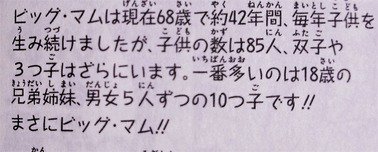 ビッグ・マムは現在68歳で約42年間、毎年子供を
生み続けましたが、子供の数は85人、双子や
3つ子はざらにいます。一番多いのは18歳の
兄弟姉妹、男女5人ずつの10つ子です!!
まさにビッグ・マム!!